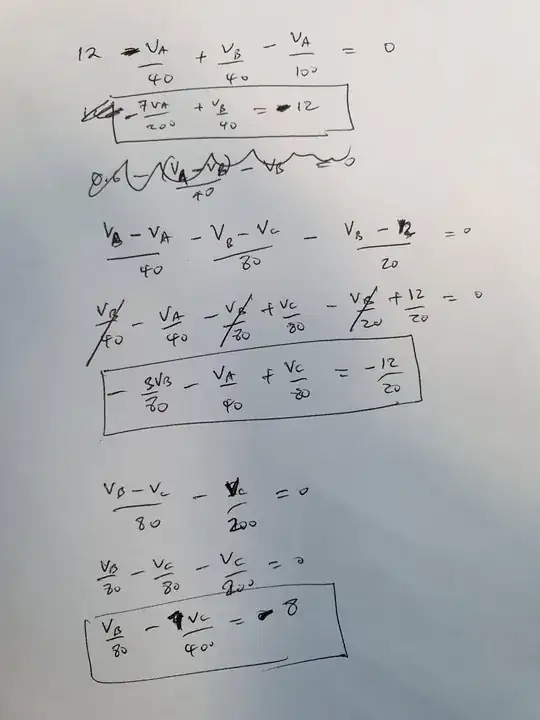 12 - VA/40 + VB/40 - VA/100 = 0
- 7VA/200 + VB/40 = -12
VB - VA/40 - VB - VC/80 - VB - 12/20 = 0
VB/40 - VA/40 - VB/80 + VC/80 - VB/20 + 12/20 = 0
- 3VB/80 - VA/40 + VC/80 = -12/20
VB - VC/80 - VC/200 = 0
VB/80 - VC/80 - VC/200 = 0
VB/80 - 7VC/400 = -8